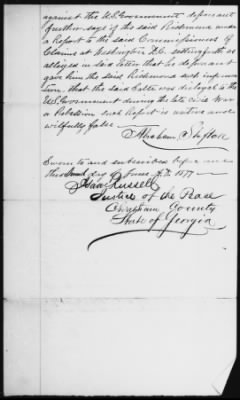 against the U.S. Government deponent
further says if the said Richmond made
a Report to the said Commissioners of
Claims at Washington D.C. setting forth as
alleged in said letter that he deponent
gave him the said Richmond such infor
tion, that the said was disloyal to the
U.S. Government during the late civil War
or Rebellion such Report is untrue and
wilfully false
Abraham
Sworn to and subscribed before me
this day of June A.D. 1877
Isaac Russell
Justice of the Peace
Chatham County
State of Georgia